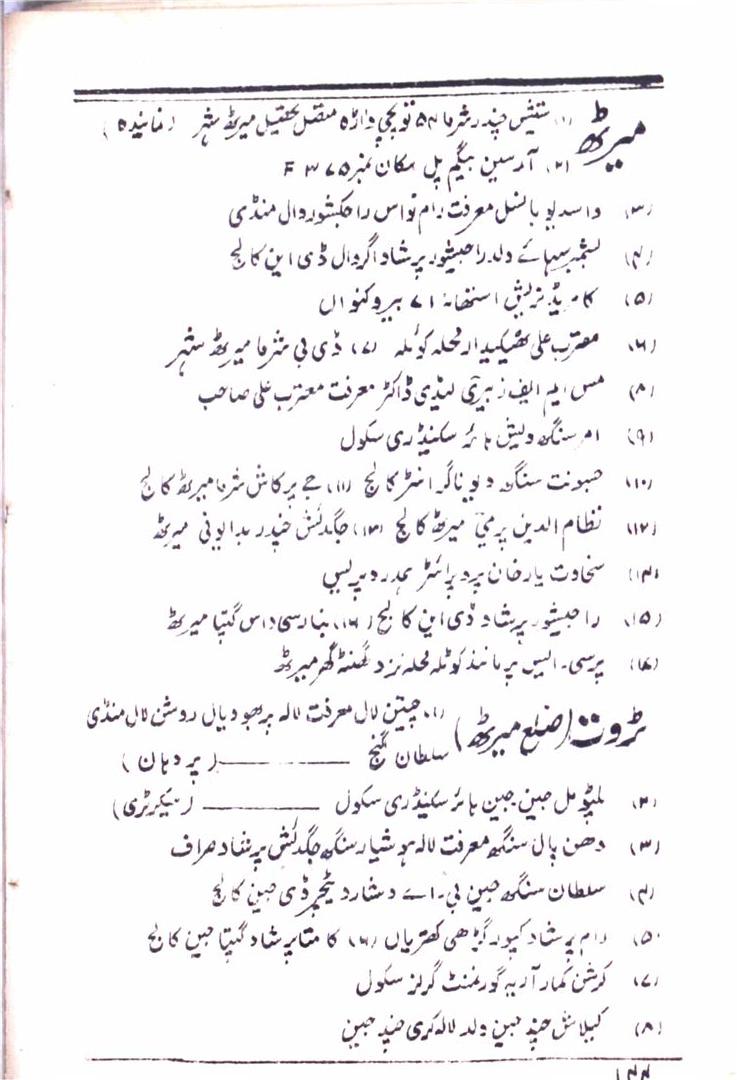 میرٹھ (۱) ستیش چندر شرما ۵۴ توپچی واڑہ متصل تحصیل میرٹھ شہر (نمائندہ)
(۲) آر سین بیگم پل مکان نمبر ۳۷۵ F
(۳) واسدیو بانسل معرفت رام نواس راجکشور دال منڈی
(۴) بشمبر سہائے ولد راجیشور پرشاد اگروال ڈی این کالج
(۵) کامریڈ نریش استھانہ ۷۱ بیرو کنواں
(۶) مقرب علی ٹھیکیدار محلہ کوٹلہ (۷) ڈی پی شرما میرٹھ شہر
(۸) مس ایم ایف زبیری لیڈی ڈاکٹر معرفت مقرب علی صاحب
(۹) امر سنگھ ویش ہائر سکینڈری سکول
(۱۰) جسونت سنگھ دیوناگر انٹر کالج (۱۱) جے پرکاش شرما میرٹھ کالج
(۱۲) نظام الدین پریمی میرٹھ کالج (۱۳) جگدیش چندر بدایونی میرٹھ
(۱۴) سخاوت یار خان پروپرائٹر ہمدرد پریس
(۱۵) راجیشور پرشاد ڈی این کالج (۱۶) بنارسی داس گپتا میرٹھ
(۱۷) پرسی۔ ایس پرمانند کوٹلہ محلہ نزد گھنٹہ گھر میرٹھ
بڑوت (ضلع میرٹھ) (۱) چیتن لال معرفت لالہ پربھو دیال روشن لال منڈی
سلطان گنج ــــــــــ (پردہان)
(۲) مل جین جین ہائر سکینڈری سکول ــــــــــ (سیکرٹری)
(۳) دھن پال سنگھ معرفت لالہ ہوشیار سنگھ جگدیش پرشاد صراف
(۴) سلطان سنگھ جین بی۔اے وشارد ٹیچر ڈی جین کالج
(۵) رام پرشاد کپور گڑھی کھتریاں (۶) کامتا پرشاد گپتا جین کالج
(۷) کرشن کمار آریہ گورنمنٹ گرلز سکول
(۸) کیلاش چند جین ولد لالہ کری چند جین